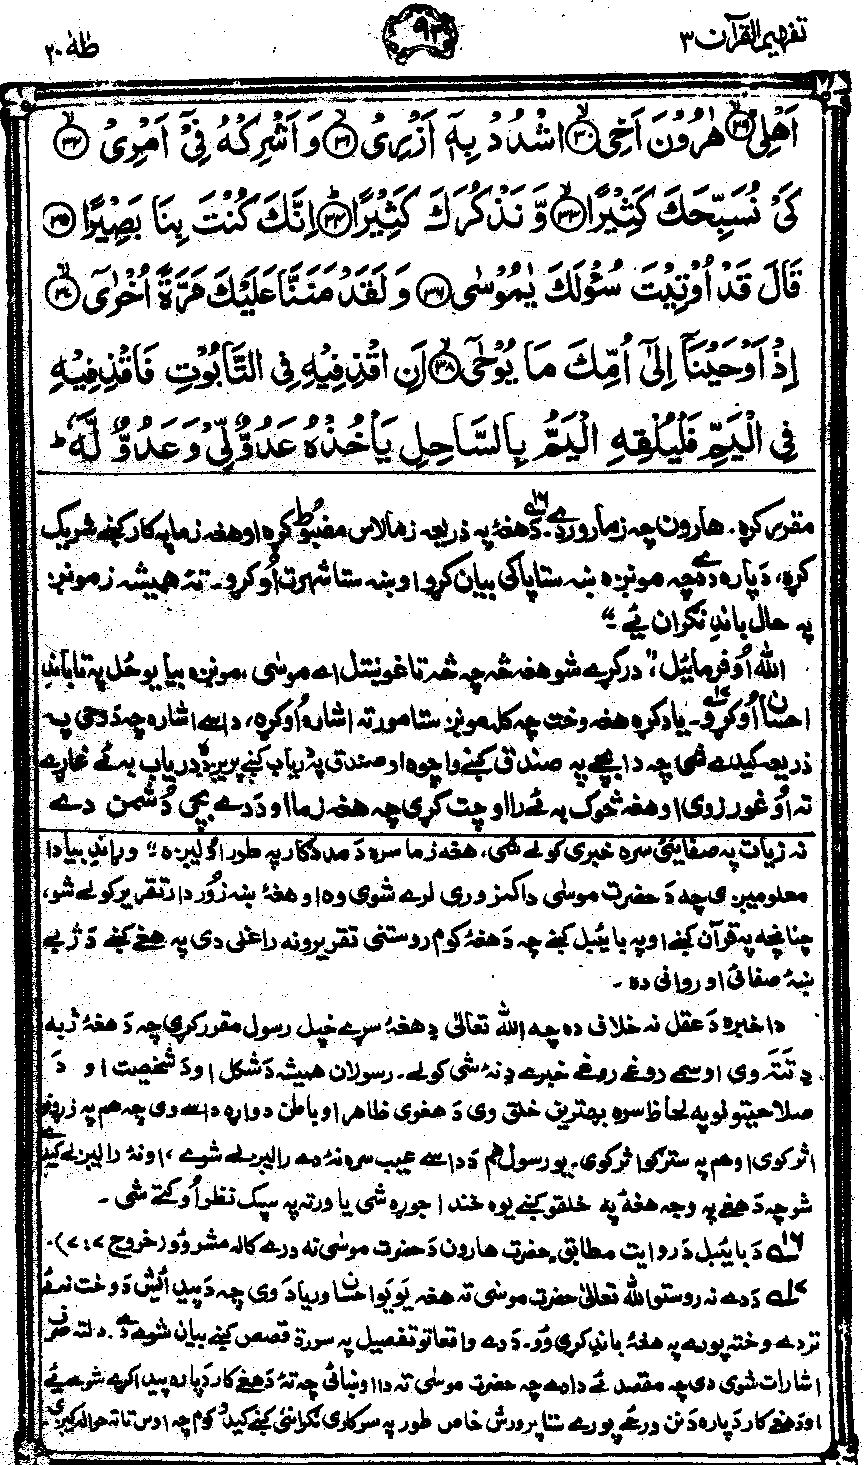 تفهیم القرآن ۳
۹۳
طٰهٰ ۲۰
اَهْلِيْ ۙ۲۹ هٰرُوْنَ اَخِي ۙ۳۰ اشْدُدْ بِهٖٓ اَزْرِيْ ۙ۳۱ وَاَشْرِكْهُ فِيْٓ اَمْرِيْ ۙ۳۲
كَيْ نُسَبِّحَكَ كَثِيْرًا ۙ۳۳ وَّ نَذْكُرَكَ كَثِيْرًا ؕ۳۴ اِنَّكَ كُنْتَ بِنَا بَصِيْرًا ۳۵
قَالَ قَدْ اُوْتِيْتَ سُؤْلَكَ يٰمُوْسٰى ۳۶ وَ لَقَدْ مَنَنَّا عَلَيْكَ مَرَّةً اُخْرٰٓى ۙ۳۷
اِذْ اَوْحَيْنَآ اِلٰٓى اُمِّكَ مَا يُوْحٰٓى ۙ۳۸ اَنِ اقْذِفِيْهِ فِي التَّابُوْتِ فَاقْذِفِيْهِ
فِي الْيَمِّ فَلْيُلْقِهِ الْيَمُّ بِالسَّاحِلِ يَاْخُذْهُ عَدُوٌّ لِّيْ وَ عَدُوٌّ لَّهٗ ؕ
مقرر کړه۔ هارون چه زما رور دے۔ ۱۶ دَ هغۀ په ذریعه زما لاس مضبوط کړه او هغه زما په کار کښے شریک
کړه، دَ پاره دَ دے چه مونږه ښه ستا پاکی بیان کړو او ښه ستا شهرت اُوکړو۔ تۀ همیشه زمونږ
په حال باندِ نگران ئے ۔"
الله اُوفرمائیل، "درکړے شو هغه څه چه څه تا غوښتل اے موسٰی، مونږه بیا یو ځل په تا باندِ
احسان اُوکړو۔ ۱۷ یاد کړه هغه وخت چه کله مونږ ستا مور ته اشاره اُوکړه، داسے اشاره چه دَ وحی په
ذریعه کیدے شی چه دا بچے په صندق کښے واچوه او صندق په دریاب کښے پریږدہ دریاب به ئے غاړے
ته اُوغورزوی او هغه څوک به ئے را اوچت کړی چه هغه زما او دَ دے بچی دُشمن دے
نه زیات په صفائئ سره خبری کولے شی، هغه زما سره دَ مددگار په طور اُولېږه ۔" وړاندِ بیا دا
معلومیږی چه دَ حضرت موسٰی دا کمزوری لرے شوی وه او هغۀ ښه زَوردار تقریر کولے شو،
چنانچه په قرآن کښے او په بائیبل کښے چه دَ هغۀ کوم روستنی تقریرونه راغلی دی په هغے کښے دَ ژبے
ښۀ صفائی او روانی ده ۔
دا خبره دَ عقل نه خلاف ده چه الله تعالیٰ دِ هغۀ سړے خپل رسول مقرر کړی چه دَ هغۀ ژبه
دِ تته وی او سمے روغے روغے خبرے دِ نۀ شی کولے۔ رسولان همیشه دَ شکل او دَ شخصیت او دَ
صلاحیتونو په لحاظ سره بهترین خلق وی دَ هغوی ظاهر او باطن دواړه داسے وی چه هم په زړونو
اثر کوی او هم په سترګو اثر کوی۔ یو رسول هم دَ داسے عیب سره نۀ دے رالېږلے شوے، او نۀ رالېږلے کیدے
شو چه دَ هغے په وجه هغۀ په خلقو کښے یوه خندا جوړه شی یا ورته په سپک نظر اُوکتے شی ۔
۱۶ دَ بائیبل دَ روایت مطابق حضرت هارون دَ حضرت موسٰی نه درے کاله مشر وۀ (خروج ۷:۷)۔
۱۷ دَ دے نه روستو الله تعالیٰ حضرت موسٰی ته هغه یو یو احسان وریادَوی چه دَ پیدائش دَ وخت نه ئے
تر دے وخته پورے په هغۀ باندِ کړی وُو۔ دَ دے واقعاتو تفصیل په سورة قصص کښے بیان شوے دے۔ دلته صرف
اشارات شوی دی چه مقصد ئے دا دے چه حضرت موسٰی ته دا اوښائی چه تۀ دَ هغے کار دَ پاره پیدا کړے شوے ئے
او دَ هغے کار دَ پاره دَ نن ورځے پورے ستا پرورش خاص طور په سرکاری نگرانئ کښے کیدو کوم چه اوس تا ته حواله کیږی۔